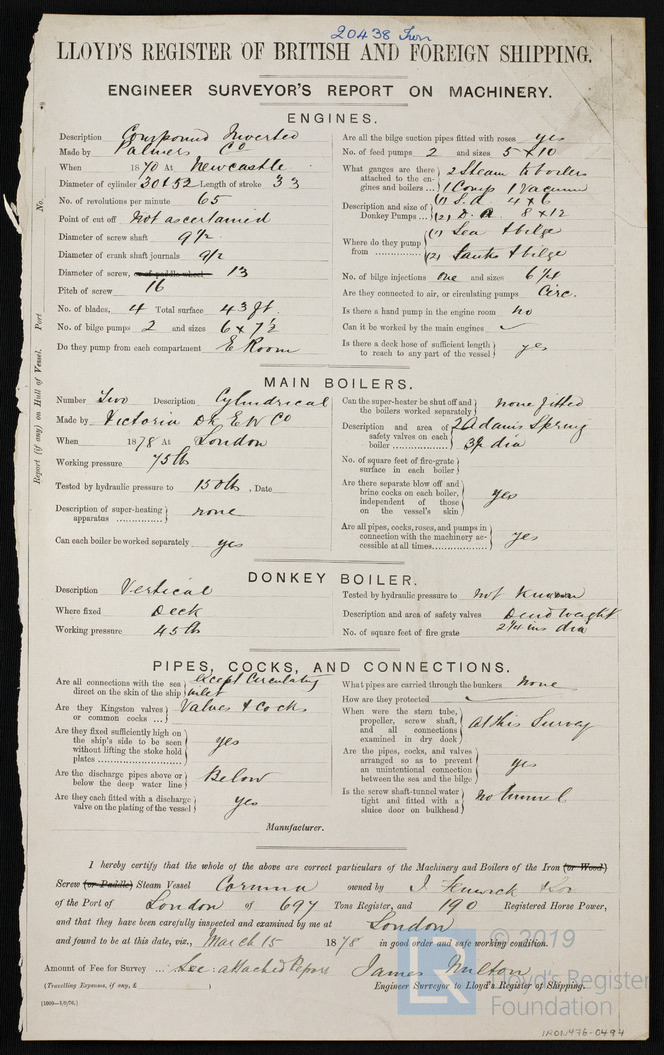 20438 Iron
LLOYD'S REGISTER OF BRITISH AND FOREIGN SHIPPING.
ENGINEER SURVEYOR'S REPORT ON MACHINERY.
Report (if any) on Hull of Vessel. Port No.
ENGINES.
Description Compound Inverted
Made by Palmers Co
When 1870 At Newcastle
Diameter of cylinder 30 & 52 Length of stroke 33
No. of revolutions per minute 65
Point of cut off Not ascertained
Diameter of screw shaft 9½
Diameter of crank shaft journals 9½
Diameter of screw, or of paddle wheel 13
Pitch of screw 16
No. of blades, 4 Total surface 43 ft.
No. of bilge pumps 2 and sizes 6 x 7½
Do they pump from each compartment E Room
Are all the bilge suction pipes fitted with roses yes
No. of feed pumps 2 and sizes 5 x 10
What gauges are there attached to the engines and boilers ... 2 Steam to boilers
1 Comp 1 Vacuum
Description and size of Donkey Pumps ... (1) S.a 4 x 6
(2) D.a. 8 x 12
Where do they pump from ............ (1) Sea & bilge
(2) Tanks & bilge
No. of bilge injections one and sizes 6¼
Are they connected to air, or circulating pumps Circ.
Is there a hand pump in the engine room no
Can it be worked by the main engines
Is there a deck hose of sufficient length to reach to any part of the vessel yes
MAIN BOILERS.
Number Two Description Cylindrical
Made by Victoria Dk E W Co
When 1878 At London
Working pressure 75 lb
Tested by hydraulic pressure to 150 lb, Date
Description of super-heating apparatus ............... none
Can each boiler be worked separately yes
Can the super-heater be shut off and the boilers worked separately none fitted
Description and area of safety valves on each boiler .................. 2 Adams Spring
3½ dia
No. of square feet of fire-grate surface in each boiler
Are there separate blow off and brine cocks on each boiler, independent of those on the vessel's skin yes
Are all pipes, cocks, roses, and pumps in connection with the machinery accessible at all times............ yes
DONKEY BOILER.
Description Vertical
Where fixed Deck
Working pressure 45 lb
Tested by hydraulic pressure to not known
Description and area of safety valves Dead weight
2¼ ins dia
No. of square feet of fire grate
PIPES, COCKS, AND CONNECTIONS.
Are all connections with the sea direct on the skin of the ship except Circulating inlet
Are they Kingston valves or common cocks ... Valves & Cocks
Are they fixed sufficiently high on the ship's side to be seen without lifting the stoke hold plates .................. yes
Are the discharge pipes above or below the deep water line Below
Are they each fitted with a discharge valve on the plating of the vessel yes
What pipes are carried through the bunkers none
How are they protected
When were the stern tube, propeller, screw shaft, and all connections examined in dry dock at this Survey
Are the pipes, cocks, and valves arranged so as to prevent an unintentional connection between the sea and the bilge yes
Is the screw shaft-tunnel water tight and fitted with a sluice door on bulkhead no tunnel
Manufacturer.
I hereby certify that the whole of the above are correct particulars of the Machinery and Boilers of the Iron (or Wood)
Screw (or Paddle) Steam Vessel owned by J. Fenwick & Son
of the Port of London of 697 Tons Register, and 190 Registered Horse Power,
and that they have been carefully inspected and examined by me at London
and found to be at this date, viz., March 15 1878 in good order and safe working condition.
Amount of Fee for Survey ... See attached Report James Milton
(Travelling Expenses, if any, £ ) Engineer Surveyor to Lloyd's Register of Shipping.
LR © 2019
Lloyd's Register
Foundation
IRON476-0494